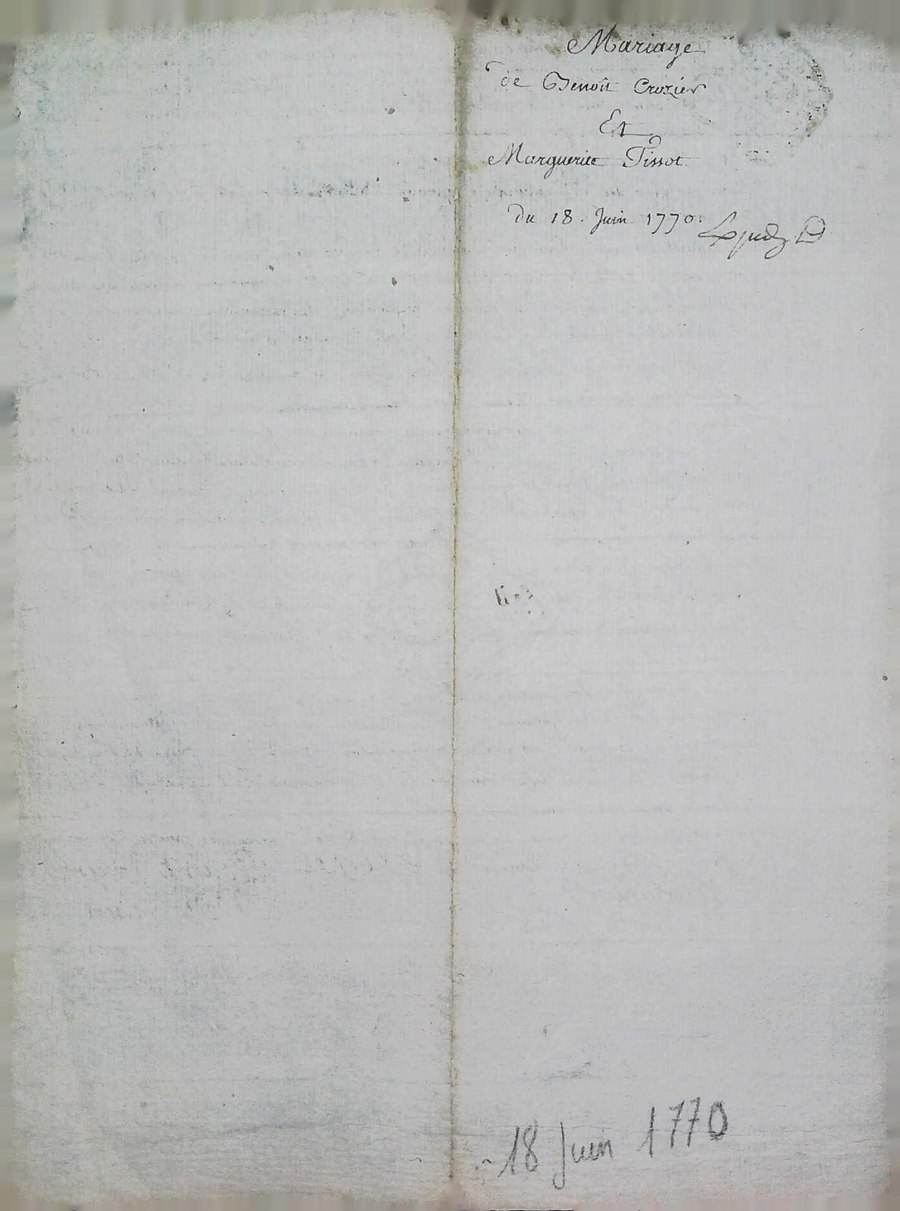 Mariage
de Benoît Crozier
Et
Marguerite Tissot
du 18. Juin 1770.
18 Juin 1770